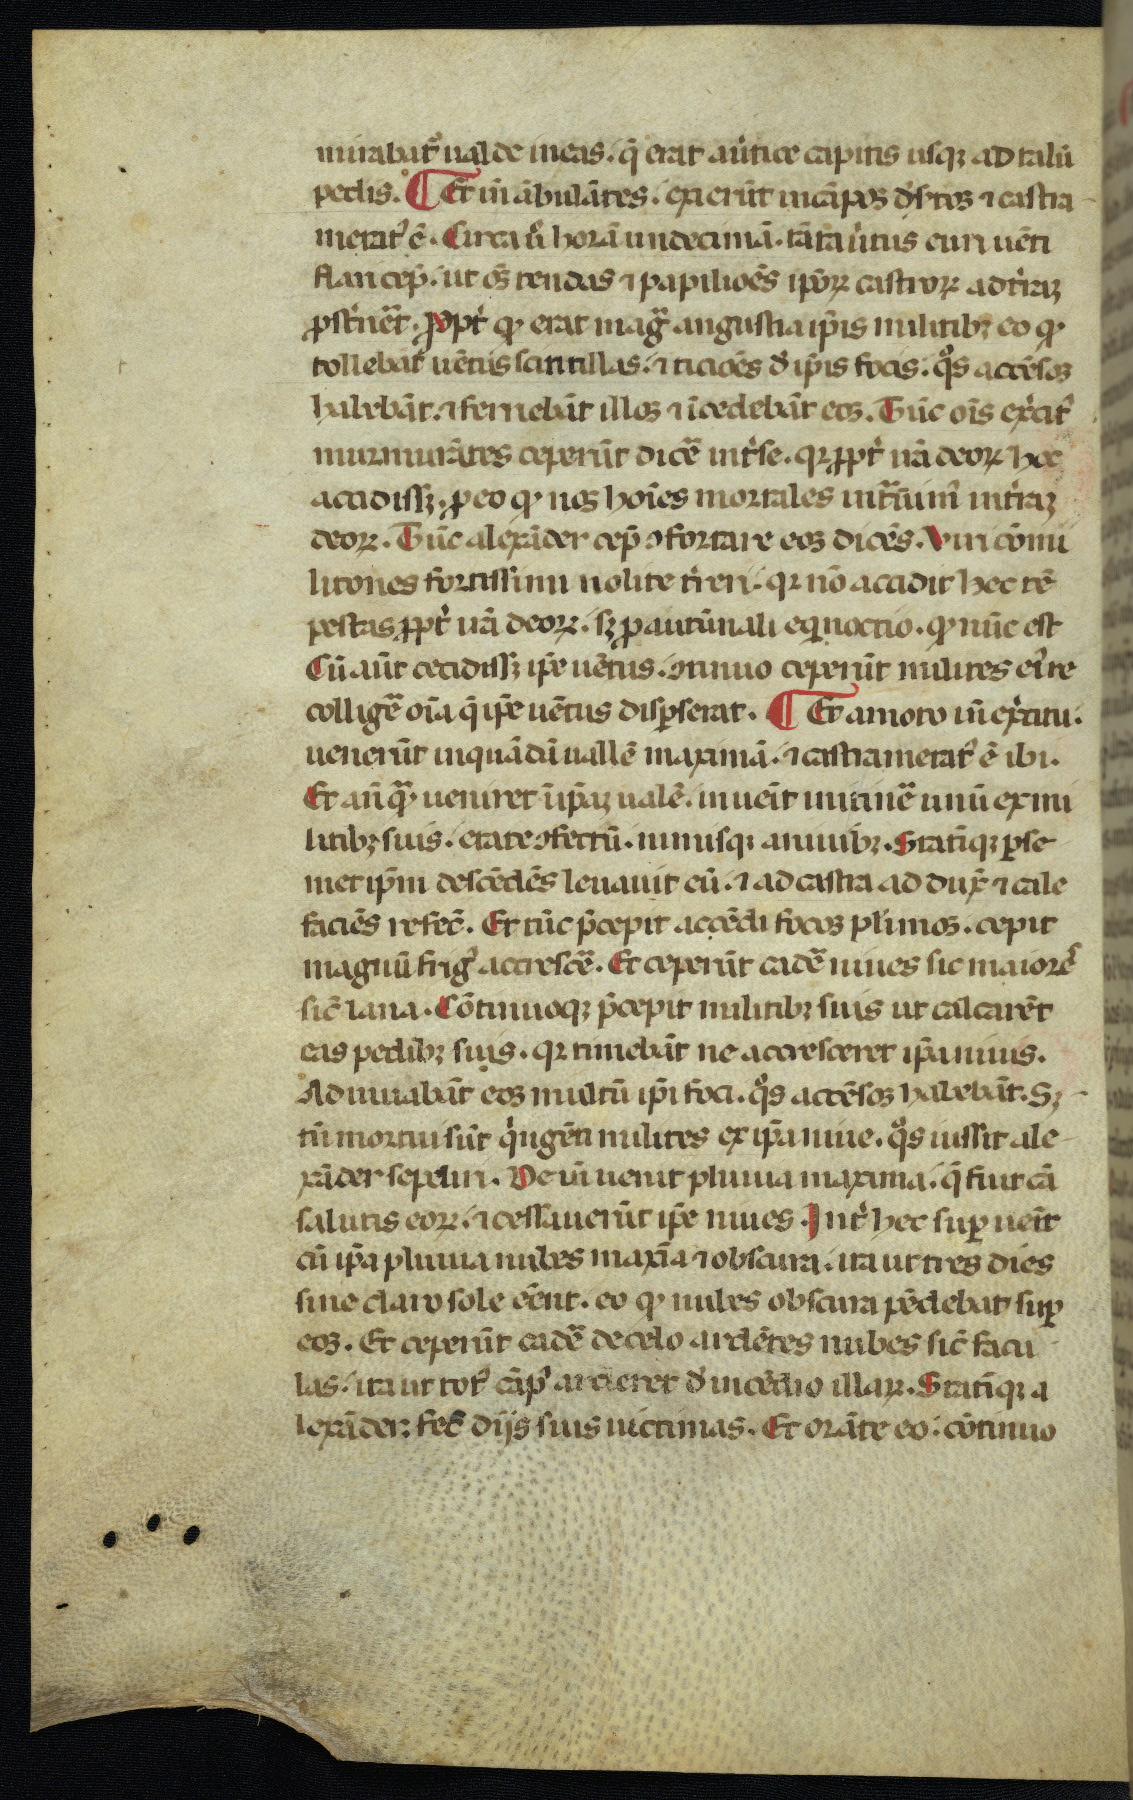 mirabat᷑ ualde in eas. q̄ erat a u̓tice capitis usqꝫ ad talū
pedis. ¶ Et in̄ ābulātes. exierūt in cāpos dīstos ⁊ castra
metatꝰ ē. Circa u̓ horā undecimā. tāta u̓tus euri uēti
flari cep̄. ut os̄ tendas ⁊ papilioēs ip̄oꝝ castroꝝ ad tr̄aꝫ
ꝓst̓net̄. Ꝓpt̓ ꝙ erat maḡ angustia ip̄is militibꝫ eo ꝙ
tollebat uētus scintillas. ⁊ ticiōes d̓ ip̄is focis. qͦs accēsos
habebāt. ⁊ feriebāt illos ⁊ īcedebāt eos. Tūc oīs ex̓citꝰ
murmurātes ceperūt dice̅ int̓ se. qꝛ ꝓpt̓ irā deoꝝ hec
accidissꝫ. ꝓ eo ꝙ nos hoīes mortales int̓uim̓ int̓raꝫ
deoꝝ. Tūc alexāder cep̄ ꝯfortare eos dicēs. Viri cōmi
litones fortissimi nolite t̓reri. qꝛ nō accidit hec tē
pestas ꝓpt̓ irā deoꝝ. sꝫ ꝓ autūnali equinoctio. ꝙ nūc est
Cū aūt cecidissꝫ ip̄e uētus. ꝯtinuo ceperūt milites eīre
collige̅ oīa q̄ ip̄e uētus disꝑserat. ¶ Et amoto in̄ ex̓citu.
uenerūt in quādā uallē maximā. ⁊ castrametatꝰ ē ibi.
Et an̄ꝗ̄ ueniret in̄ ip̄aꝫ ualē. inueīt in itine̅ unū ex mi
litibꝫ suis. etate ꝯfectū. nimisqꝫ a niuibꝫ. Statīqꝫ ꝑ se
met ip̄m descēdēs leuauit eū. ⁊ ad castra ad dux̄ ⁊ cale
faciēs refec̄. Et tūc p̄cepit accēdi focos pl̓imos. cepit
magnū frigꝰ accresce̅. Et ceperūt cade̅ niues sic maiore̅
sic̄ lana. Cōtinuoqꝫ p̄cepit militibꝫ suis ut calcarēt
eas pedibꝫ suis. qꝛ timebāt ne accresceret ip̄a niuis.
Adiuuabāt eos multū ip̄i foci. qͦs accēsos habebāt. Sꝫ
tn̄ mortui sūt q̓ngēti milites ex ip̄a niue. qͦs iussit ale
xāder sepeliri. De in̄ uenit pluuia maxima. q̄ fuit cā
salutis eoꝝ. ⁊ cessauerūt ip̄e niues. Int̓ hec suꝑ ueīt
cū ip̄a pluuia nubes maxīa ⁊ obscura. ita ut tres dies
sine claro sole eēnt. eo ꝙ nubes obscura pēdebat suꝑ
eos. Et ceperūt cade̅ de celo ardētes nubes sic̄ facu
las. ita ut totꝰ cāpꝰ arderet d̓ incēdio illaꝝ. Statīqꝫ a
lexāder. fec̄ dijs suis uictimas. Et orāte eo. cōtinuo